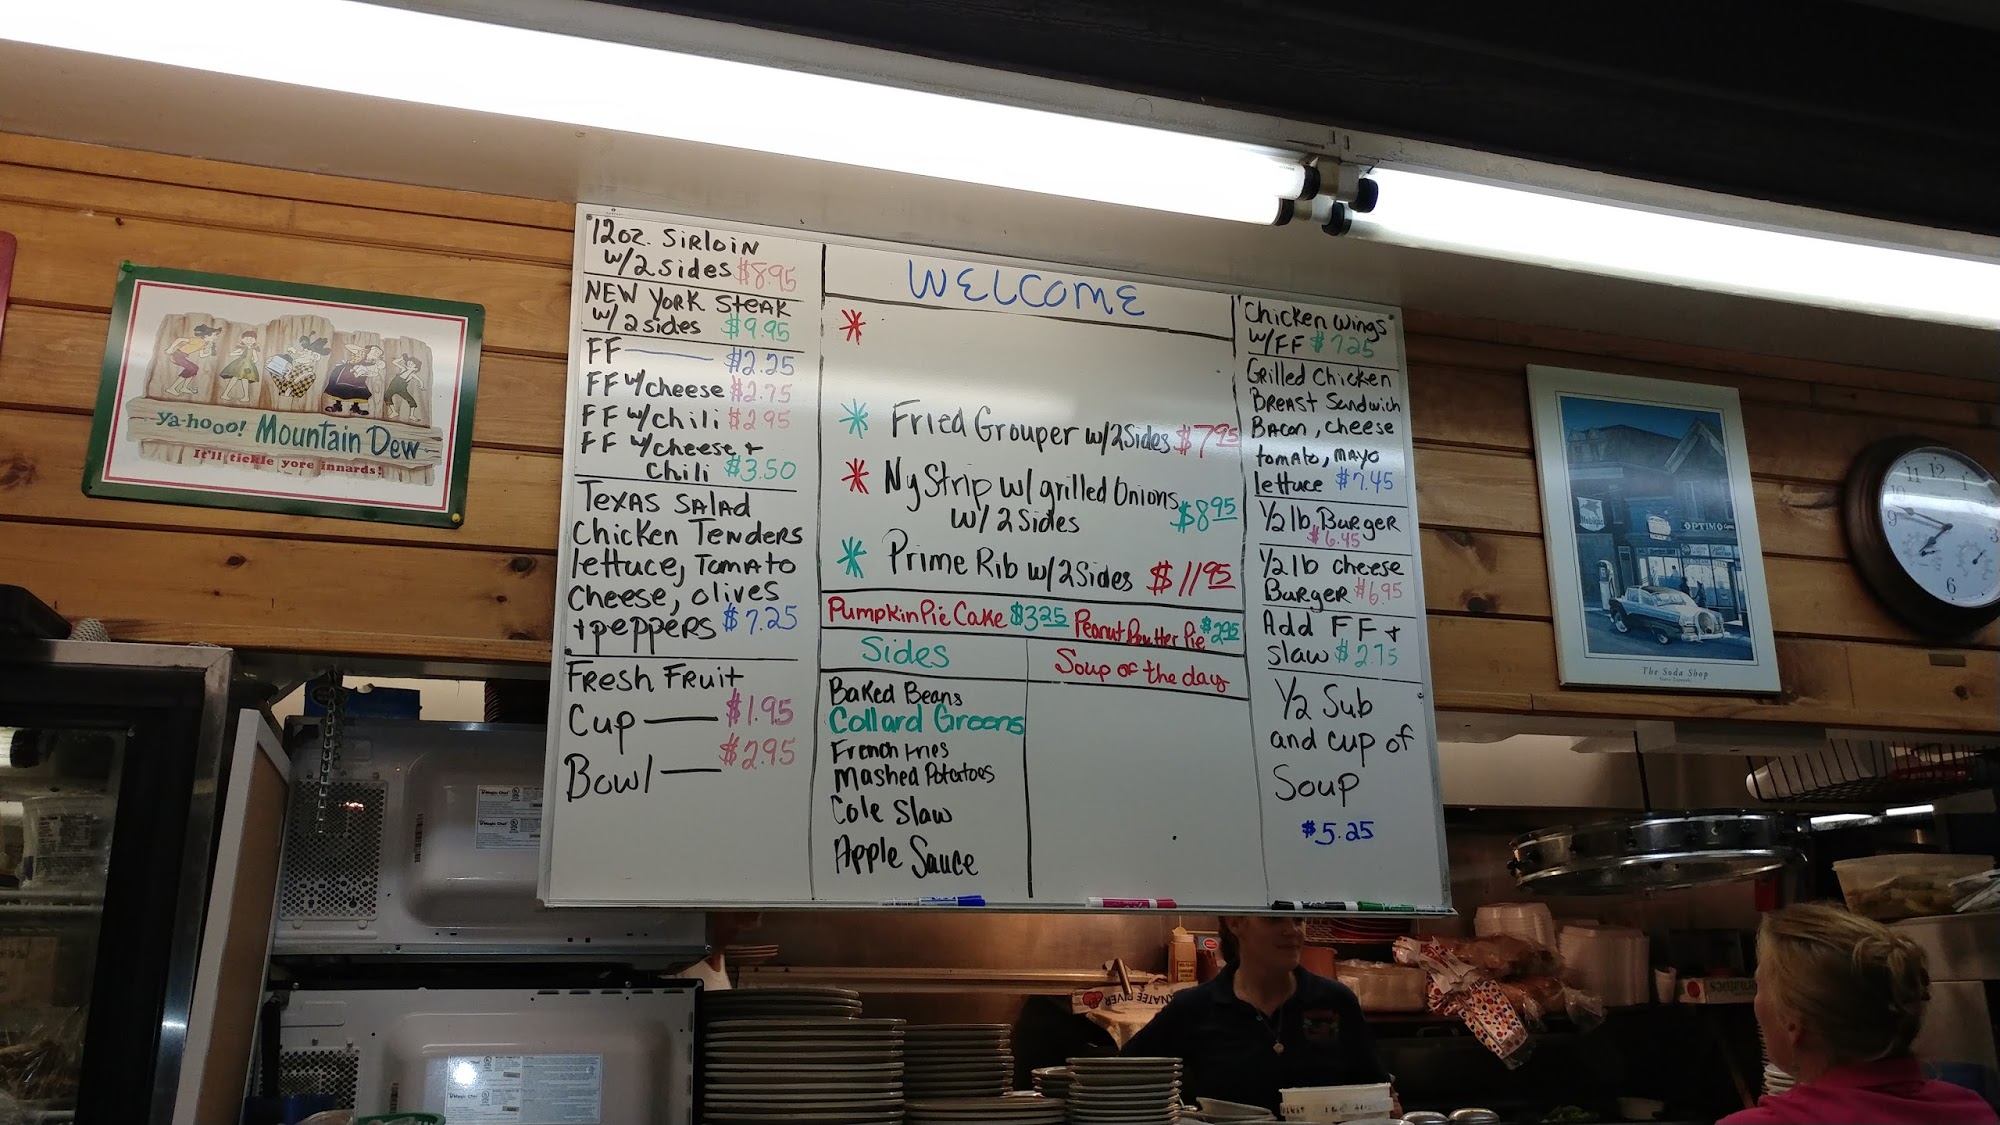 12oz. Sirloin
w/2 sides $8.95
NEW YORK Steak
w/2 sides $9.95
FF $2.25
FF w/cheese $2.75
FF w/chili $2.95
FF w/cheese +
Chili $3.50
TEXAS SALAD
Chicken Tenders
lettuce, Tomato
Cheese, olives
+ peppers $7.25
Fresh Fruit
Cup $1.95
Bowl $2.95
WELCOME
Fried Grouper w/2Sides $7.95
Ny Strip w/grilled Onions
w/ 2 Sides $8.95
Prime Rib w/2Sides $11.95
Pumpkin Pie Cake $3.25 Peanut Butter Pie $2.95
Sides
Baked Beans
Collard Greens
French Fries
Mashed Potatoes
Cole Slaw
Apple Sauce
Soup of the day
Chicken Wings
w/FF $7.25
Grilled Chicken
Breast Sandwich
Bacon, cheese
tomato, mayo
lettuce $7.45
1/2 lb Burger
$6.45
1/2 lb cheese
Burger $6.95
Add FF +
slaw $2.75
1/2 Sub
and cup of
Soup
$5.25
ya-hooo! Mountain Dew
It'll tickle yore innards!
OPTIMO
The Soda Shop
11 12 1
10
9
6
Magic Chef
Magic Chef